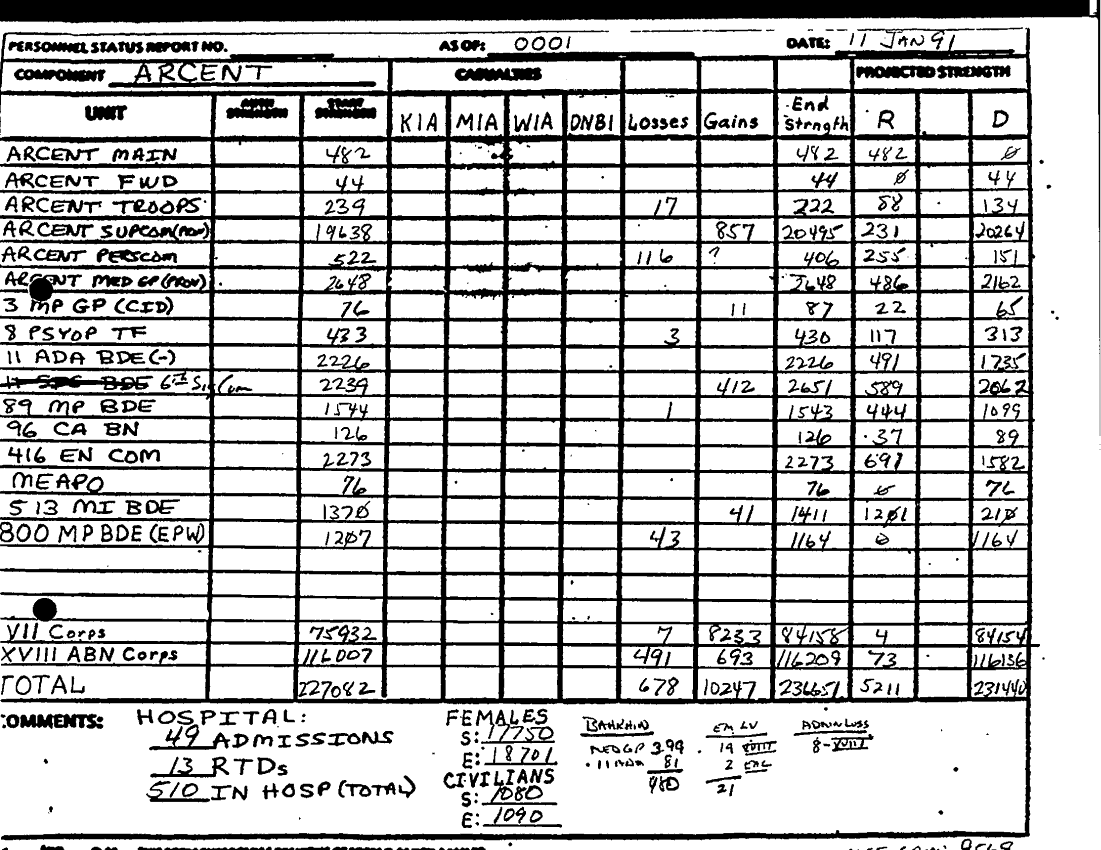 PERSONNEL STATUS REPORT NO. AS OF: 0001 DATE: 11 JAN 91
COMPONENT ARCENT CASUALTIES PROJECTED STRENGTH
UNIT AUTH STRENGTH START STRENGTH KIA MIA WIA DNBI Losses Gains End Strngth R D
ARCENT MAIN 482 482 482 0
ARCENT FWD 44 44 0 44
ARCENT TROOPS 239 17 222 88 134
ARCENT SUPCOM (PROV) 19638 857 20495 231 20264
ARCENT PERSCOM 522 116 ? 406 255 151
ARCENT MED GP (PROV) 2648 2648 486 2162
3 MP GP (CID) 76 11 87 22 65
8 PSYOP TF 433 3 430 117 313
11 ADA BDE (-) 2226 2226 491 1735
6th Sig Com 2239 412 2651 589 2062
89 MP BDE 1544 1 1543 444 1099
96 CA BN 126 126 37 89
416 EN COM 2273 2273 691 1582
MEAPO 76 76 0 76
513 MI BDE 1370 41 1411 1201 210
800 MP BDE (EPW) 1207 43 1164 0 1164
VII Corps 75932 7 8233 84158 4 84154
XVIII ABN Corps 116007 491 693 116209 73 116136
TOTAL 227082 678 10247 236651 5211 231440
COMMENTS: HOSPITAL:
49 ADMISSIONS
13 RTDs
510 IN HOSP (TOTAL)
FEMALES
S: 17750
E: 18701
CIVILIANS
S: 1080
E: 1090
BAHRAIN
MED GP 399
11 ADA 81
480
EM LV
19 XVIII
2 EAC
21
ADMIN LOSS
8-XVIII
9568